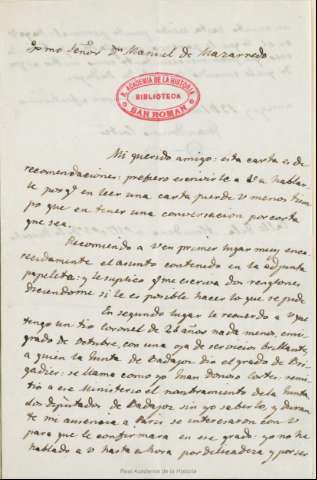 Exmo Señor Dn Manuel de Mazarredo
R. ACADEMIA DE LA HISTORIA
BIBLIOTECA
SAN ROMAN
Mi querido amigo: esta carta es de
recomendaciones: prefiero escribirle a V. a hablar-
le porq.e en leer una carta pierde V menos tiem-
po que en tener una conversacion por corta
que sea.
Recomiendo a V en primer lugar muy enca-
recidamente el asunto contenido en la adjunta
papeleta: y le suplico q me escriva dos renglones
diciendome si le es posible hacer lo que se pide
En segundo lugar le recuerdo a V que
tengo un tio coronel de 26 años nada menos, emi-
grado de octubre, con una oja de servicios brillante,
a quien la Junta de Badajoz dio el grado de Bri-
gadier: se llama como yo Juan Donoso Cortes: remi-
tio a ese Ministerio el nombramiento dela Junta
los diputados de Badajoz sin yo saberlo, y duran-
te mi ausencia a Paris se interesaron con V
para que le confirmara en ese grado: yo no he
hablado a V hasta ahora por delicadeza y por ser
Real Academia de la Historia